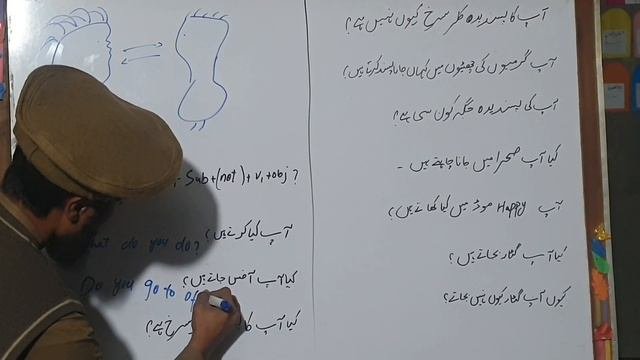 Sub+(not)+v₁+obj?
آپ کیا کرتے ہیں؟
what do you do?
کیا آپ آفس جاتے ہیں؟
Do you go to of
کیا آپ کا سرخ ہے؟
آپ کا پسندیدہ کلر سرخ کیوں نہیں ہے؟
آپ گرمیوں کی چھٹیوں میں کہاں جانا پسند کرتے ہیں؟
آپ کی پسندیدہ جگہ کون سی ہے؟
کیا آپ صحرا میں جانا چاہتے ہیں -
آپ Happy موڈ میں کیا کھاتے ہیں؟
کیا آپ گٹار بجاتے ہیں؟
کیوں آپ گٹار کیوں نہیں بجاتے؟